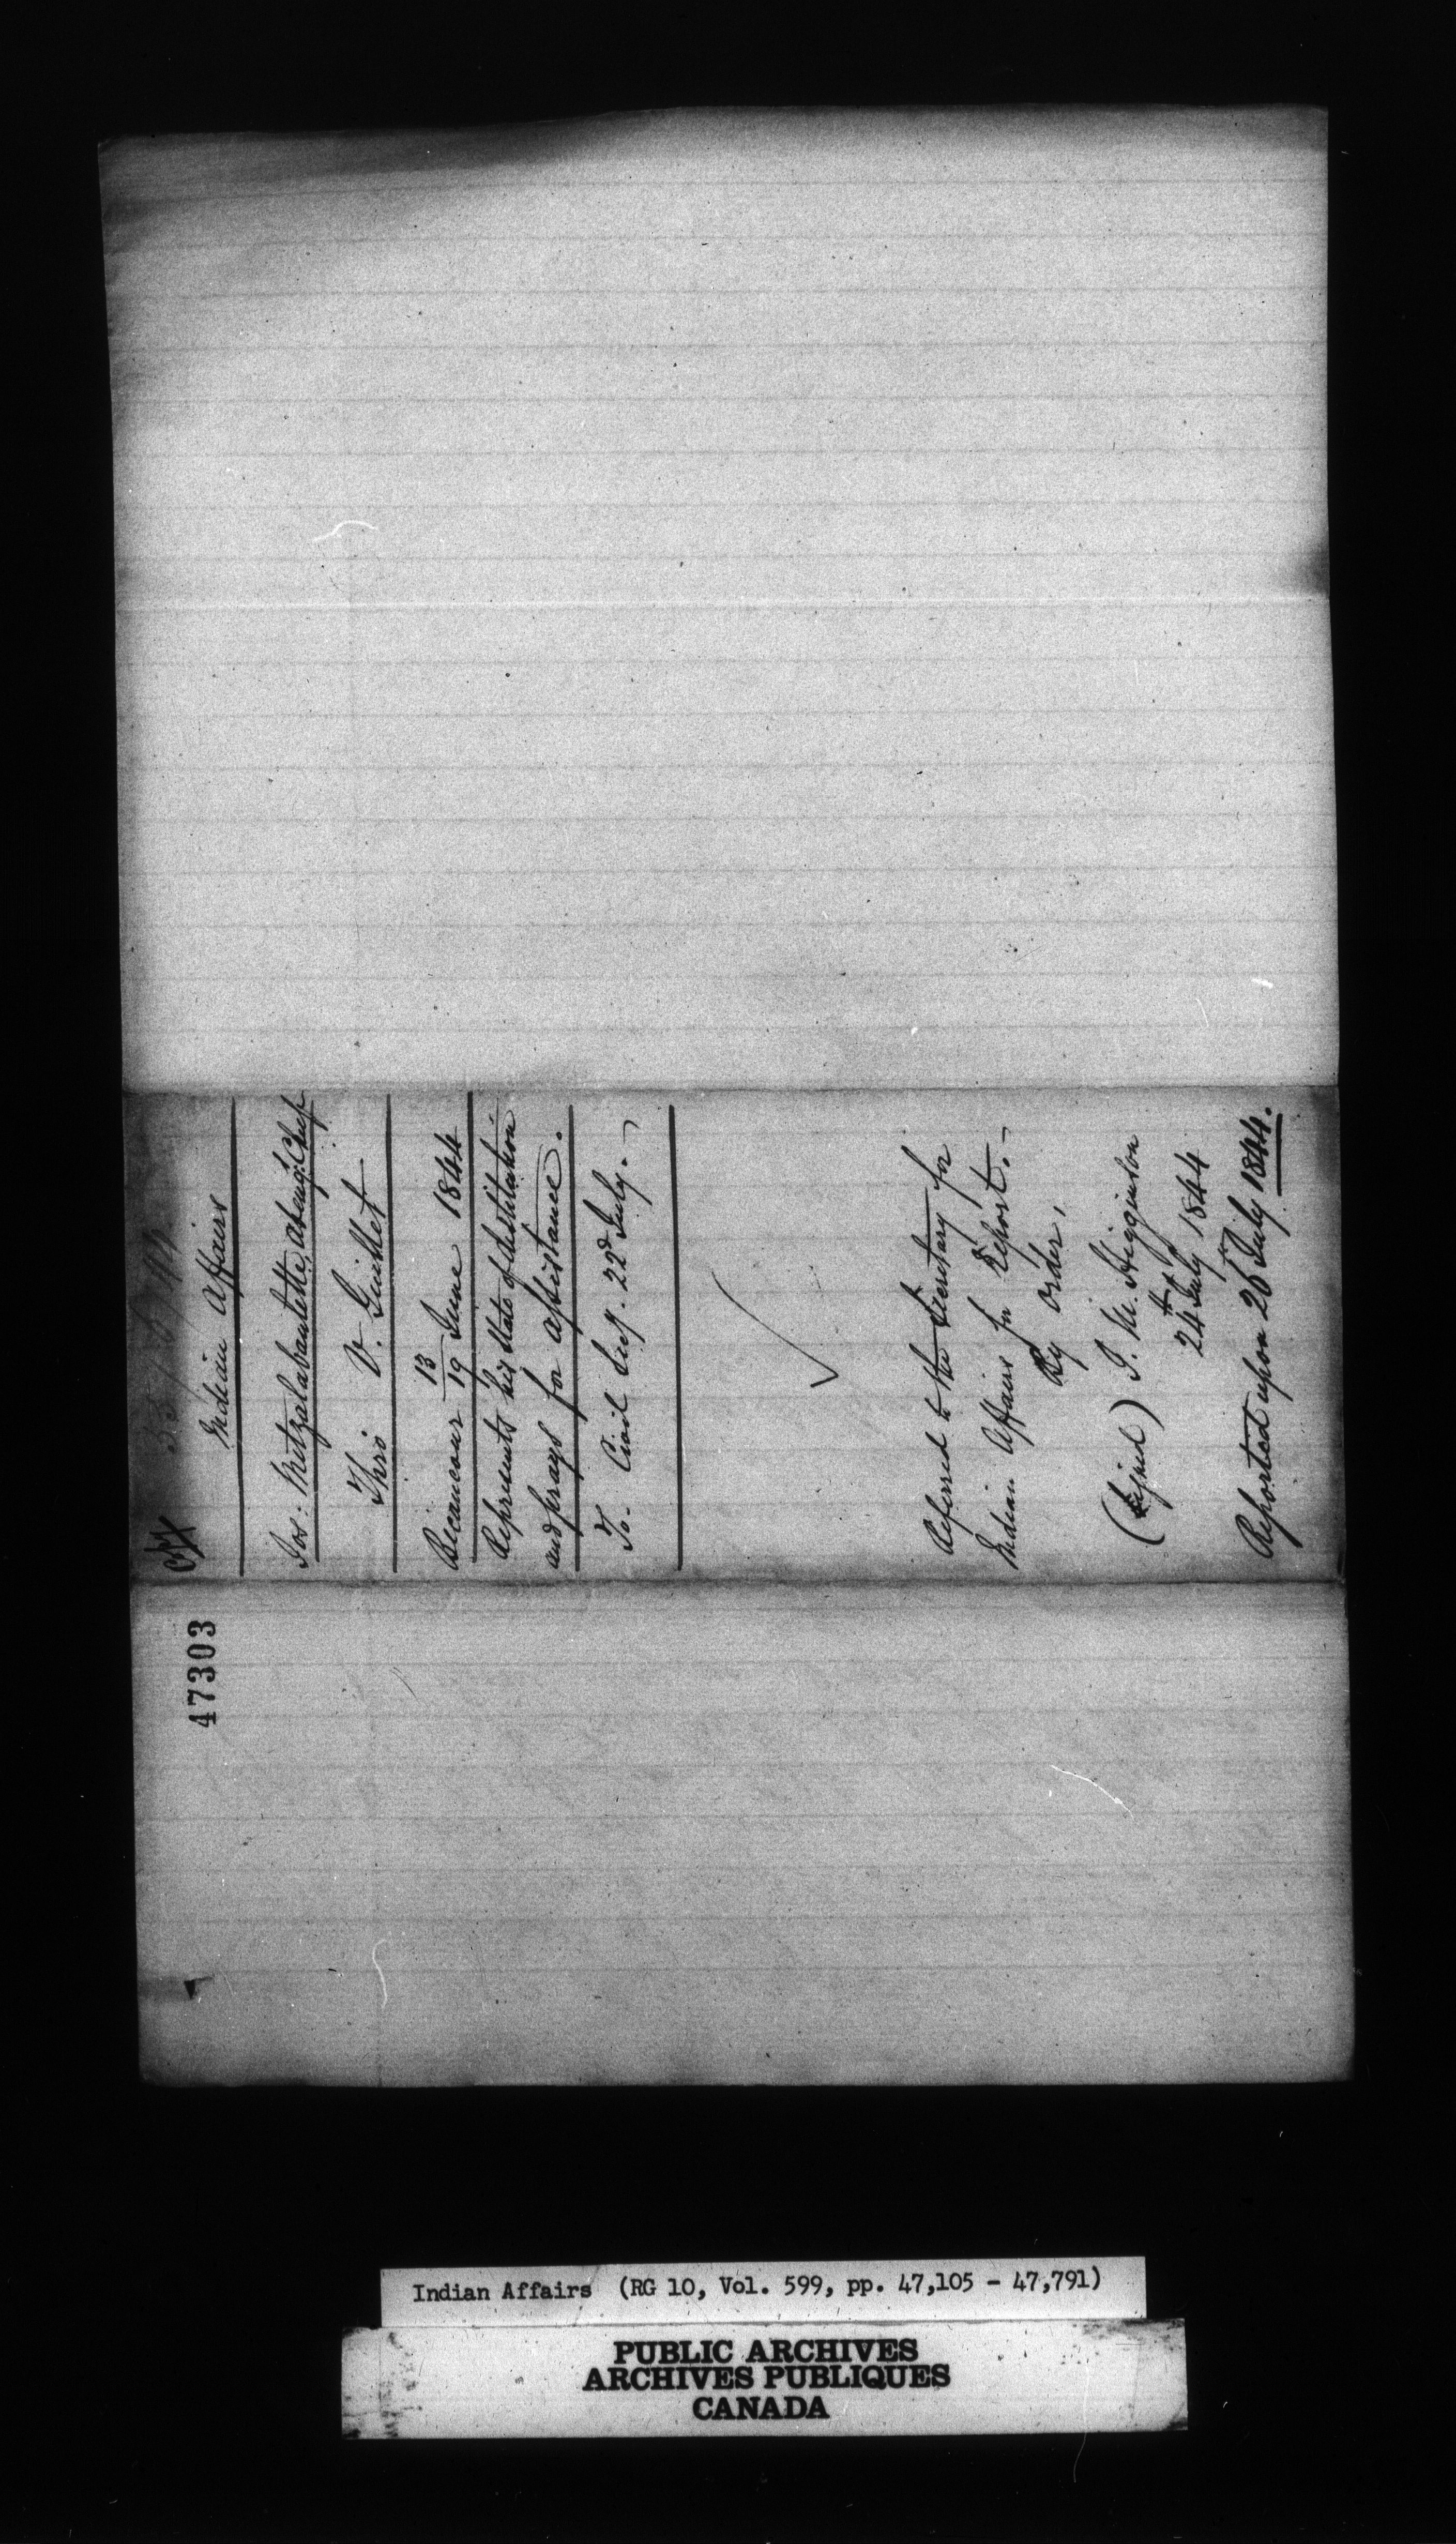 Indian Affairs
Jos: Metzalabanlette, Abenq: Chief
Thro V. Guillet
Becancour 13/19 June 1844
Represents his State of destitution
and prays for assistance.
To. Civil Secy. 22d July.
Referred to the Secretary for
Indian Affairs for Report.
By order,
(Signed) J. M. Higginson
24th July 1844
Reported upon 26 July 1844.
47303
Indian Affairs (RG 10, Vol. 599, pp. 47,105 - 47,791)
PUBLIC ARCHIVES
ARCHIVES PUBLIQUES
CANADA